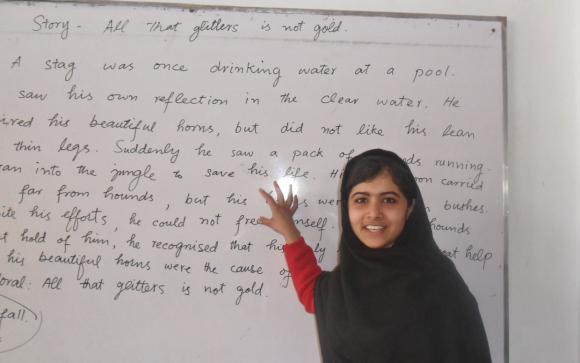 Story - All that glitters is not gold.
A stag was once drinking water at a pool.
saw his own reflection in the clear water. He
his beautiful horns, but did not like his lean
thin legs. Suddenly he saw a pack of running.
into the jungle to save his life. carried
far from hounds, but his bushes.
his efforts, he could not hounds
hold of him, he recognised that his help
his beautiful horns were the cause of
All that glitters is not gold.
fall.